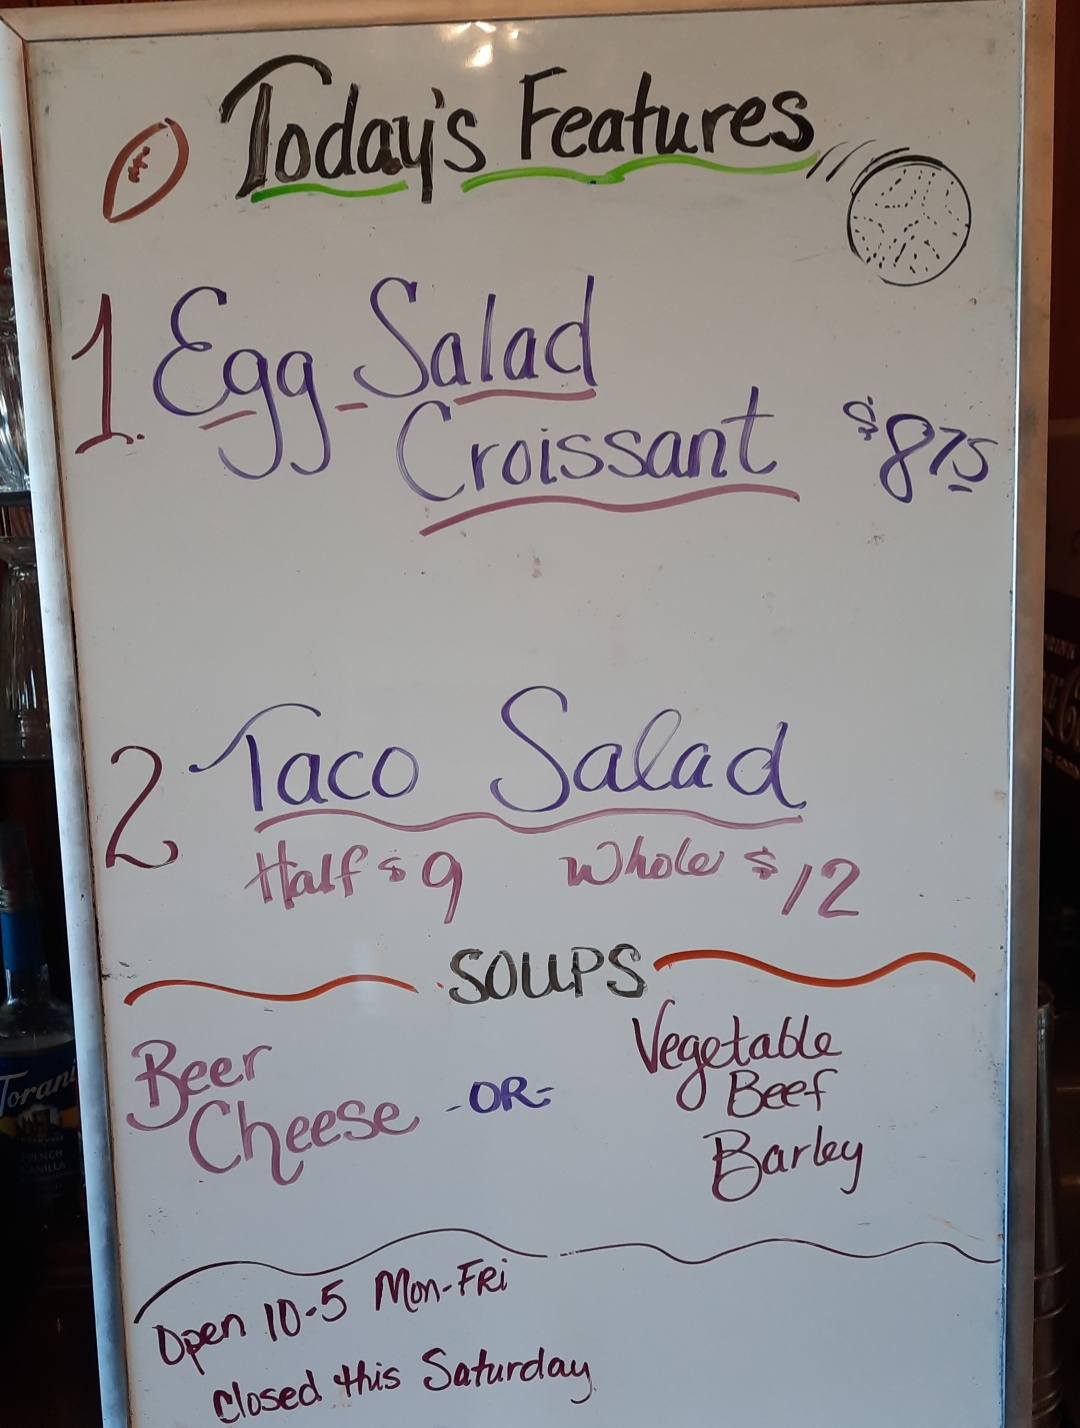 Today's Features
1. Egg Salad
Croissant $8.75
2 Taco Salad
Half $9 Whole $12
SOUPS
Beer
Cheese -OR- Vegetable
Beef
Barley
Open 10-5 Mon-Fri
Closed this Saturday
Torani
FRENCH
VANILLA